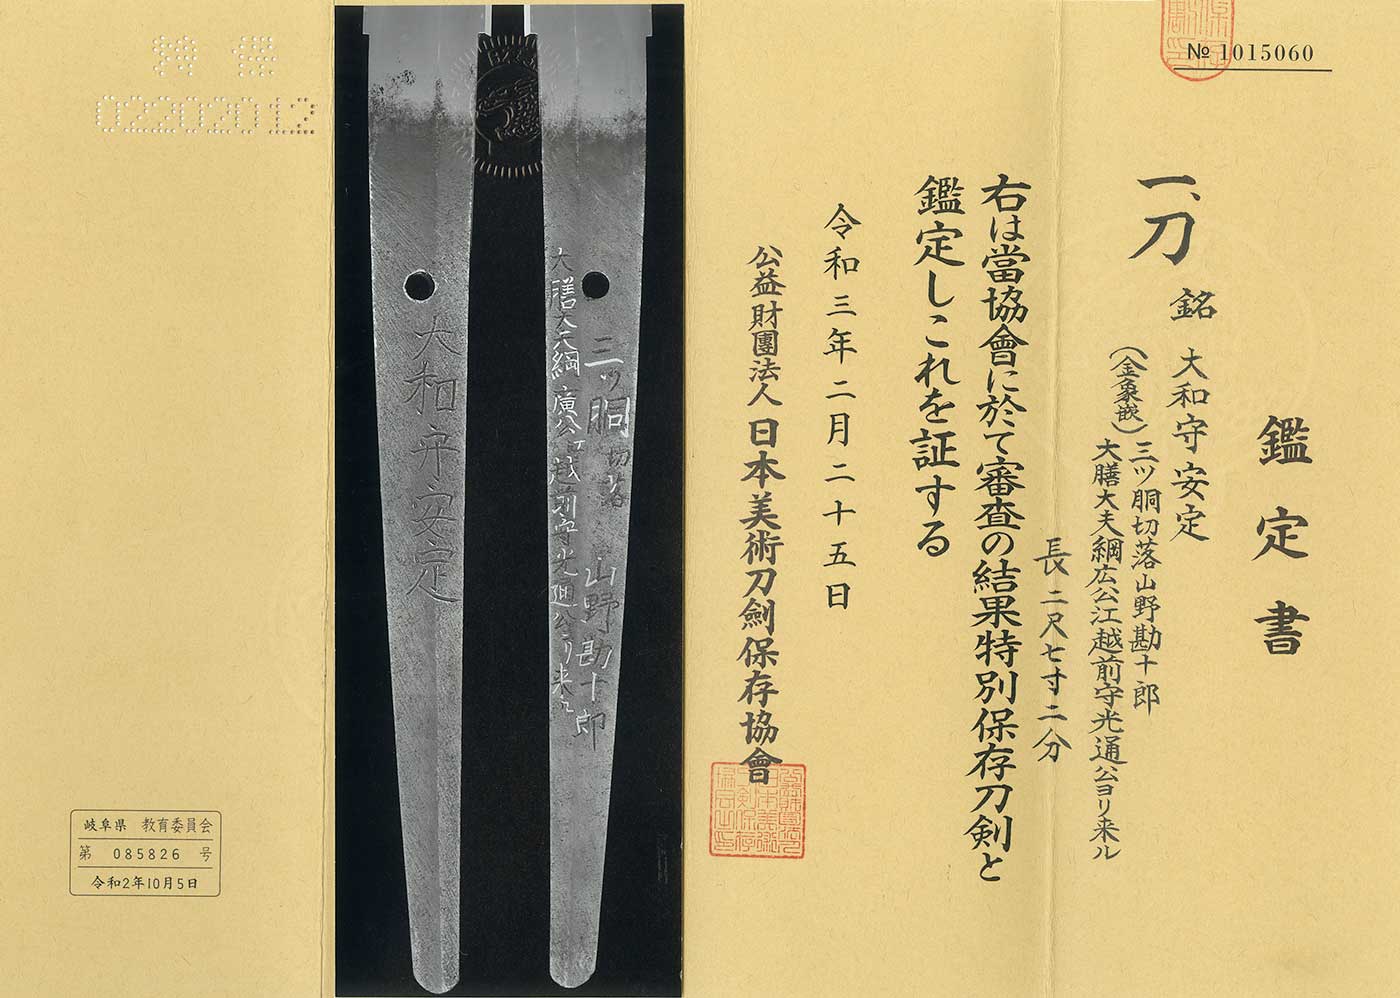 № 1015060
鑑定書
一、刀
銘 大和守安定
（金象嵌）三ツ胴切落山野勘十郎
大膳大夫綱広公江越前守光通公ヨリ来ル
長 二尺七寸二分
右は當協會に於て審査の結果特別保存刀剣と
鑑定しこれを証する
令和三年二月二十五日
公益財團法人 日本美術刀劍保存協會
三ツ胴切落 山野勘十郎
大膳大夫綱廣公江越前守光通公ヨリ来ル
大和守安定
02202012
岐阜県 教育委員会
第 085826 号
令和2年10月5日